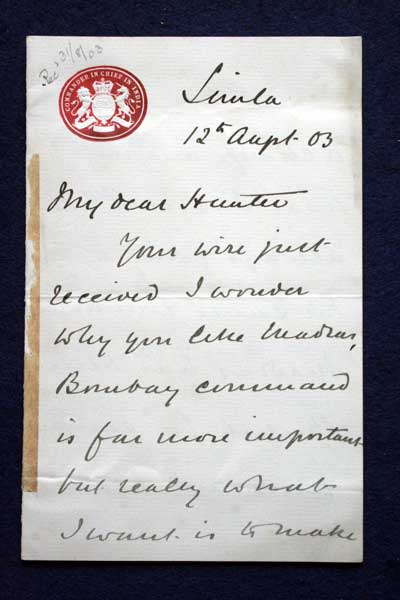 Recd 31/8/03
COMMANDER IN CHIEF IN INDIA
Simla
12th Augst 03
My dear Hunter
Your wire just
received I wonder
why you like Madras,
Bombay command
is far more important
but really what
I want is to make